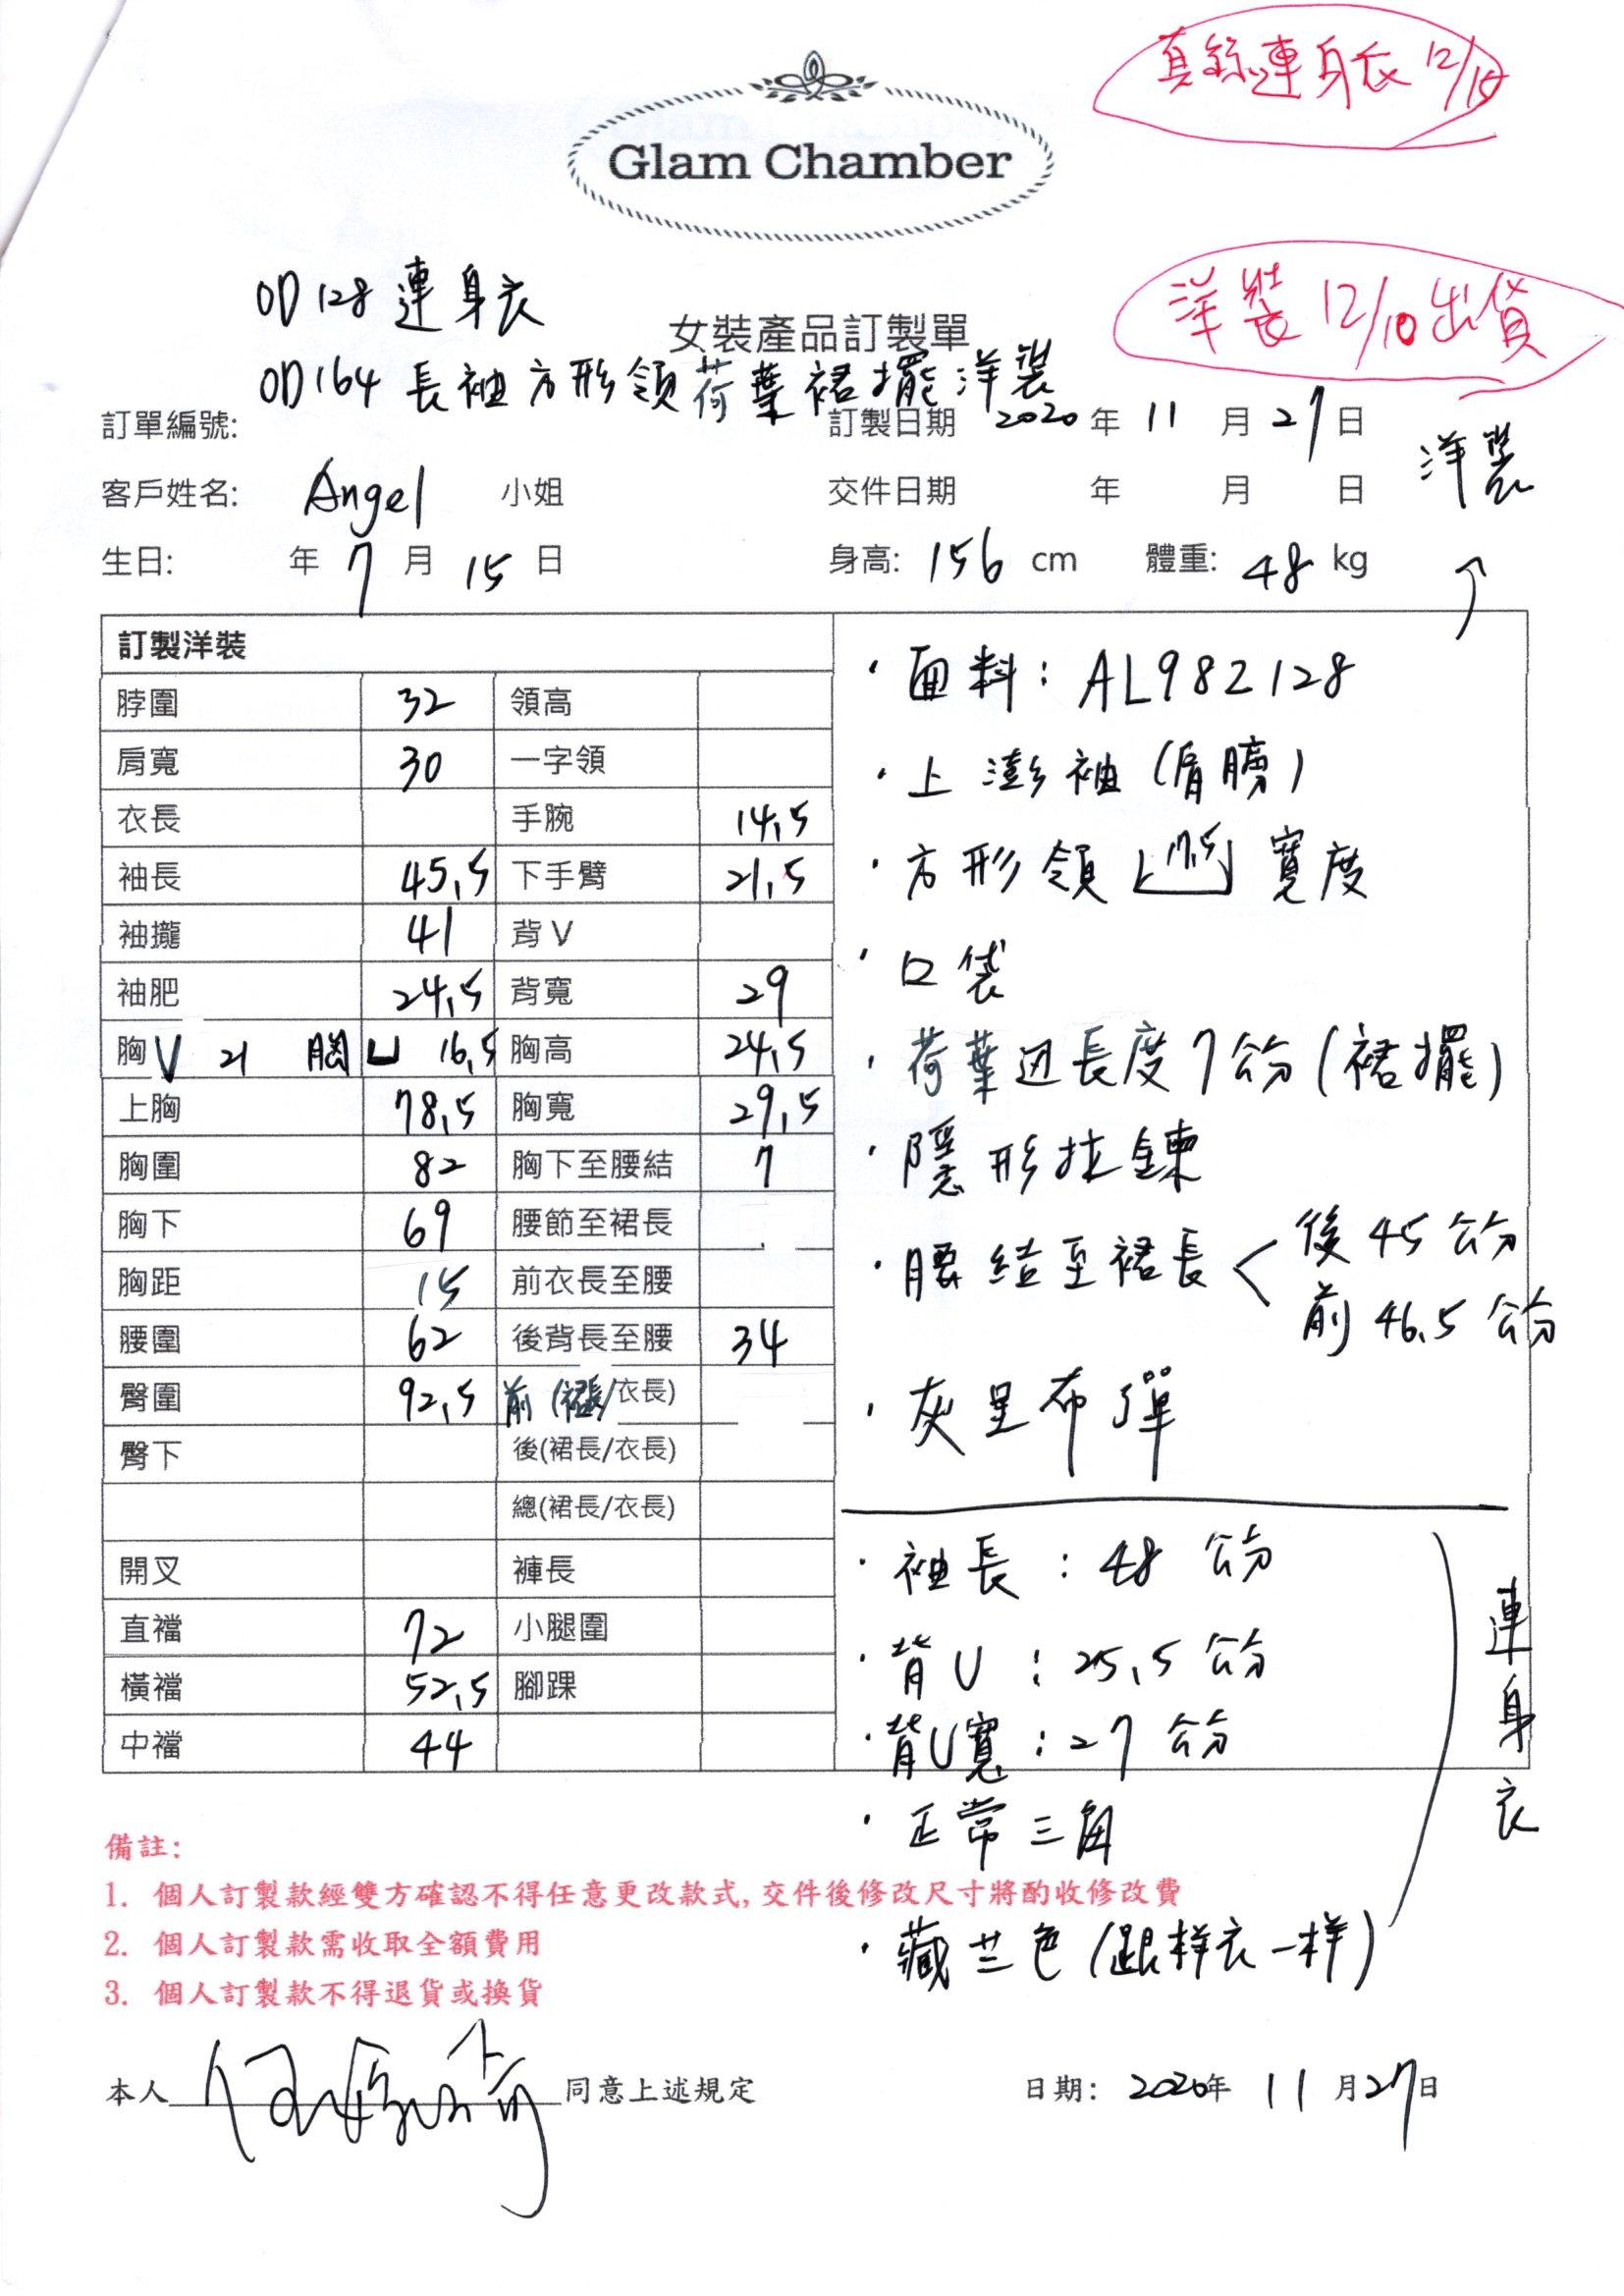 真絲連身衣 12/15
Glam Chamber
OD128 連身衣
洋裝 12/10 出貨
女裝產品訂製單
OD164 長袖方形領荷葉裙擺洋裝
訂單編號: 訂製日期 2020 年 11 月 27 日
洋裝
客戶姓名: Angel 小姐 交件日期 年 月 日
生日: 年 7 月 15 日 身高: 156 cm 體重: 48 kg
訂製洋裝
脖圍 32 領高
肩寬 30 一字領
衣長 手腕 14.5
袖長 45.5 下手臂 21.5
袖攏 41 背 V
袖肥 24.5 背寬 29
胸 V 21 胸 ⊔ 16.5 胸高 24.5
上胸 78.5 胸寬 29.5
胸圍 82 胸下至腰結 7
胸下 69 腰節至裙長
胸距 15 前衣長至腰
腰圍 62 後背長至腰 34
臀圍 92.5 前(裙長/衣長)
臀下 後(裙長/衣長)
總(裙長/衣長)
開叉 褲長
直襠 72 小腿圍
橫襠 52.5 腳踝
中襠 44
· 面料: AL982128
· 上澎袖(肩膀)
· 方形領 17.5 寬度
· 口袋
· 荷葉边長度 7 公分(裙擺)
· 隱形拉鍊
· 腰結至裙長 < 後 45 公分
前 46.5 公分
· 灰星布彈
· 袖長 : 48 公分
· 背U : 25.5 公分
· 背U寬 : 27 公分
· 正常三角
· 藏藍色(跟样衣一样)
連身衣
備註:
1. 個人訂製款經雙方確認不得任意更改款式,交件後修改尺寸將酌收修改費
2. 個人訂製款需收取全額費用
3. 個人訂製款不得退貨或換貨
本人 同意上述規定 日期: 2020年 11 月27日